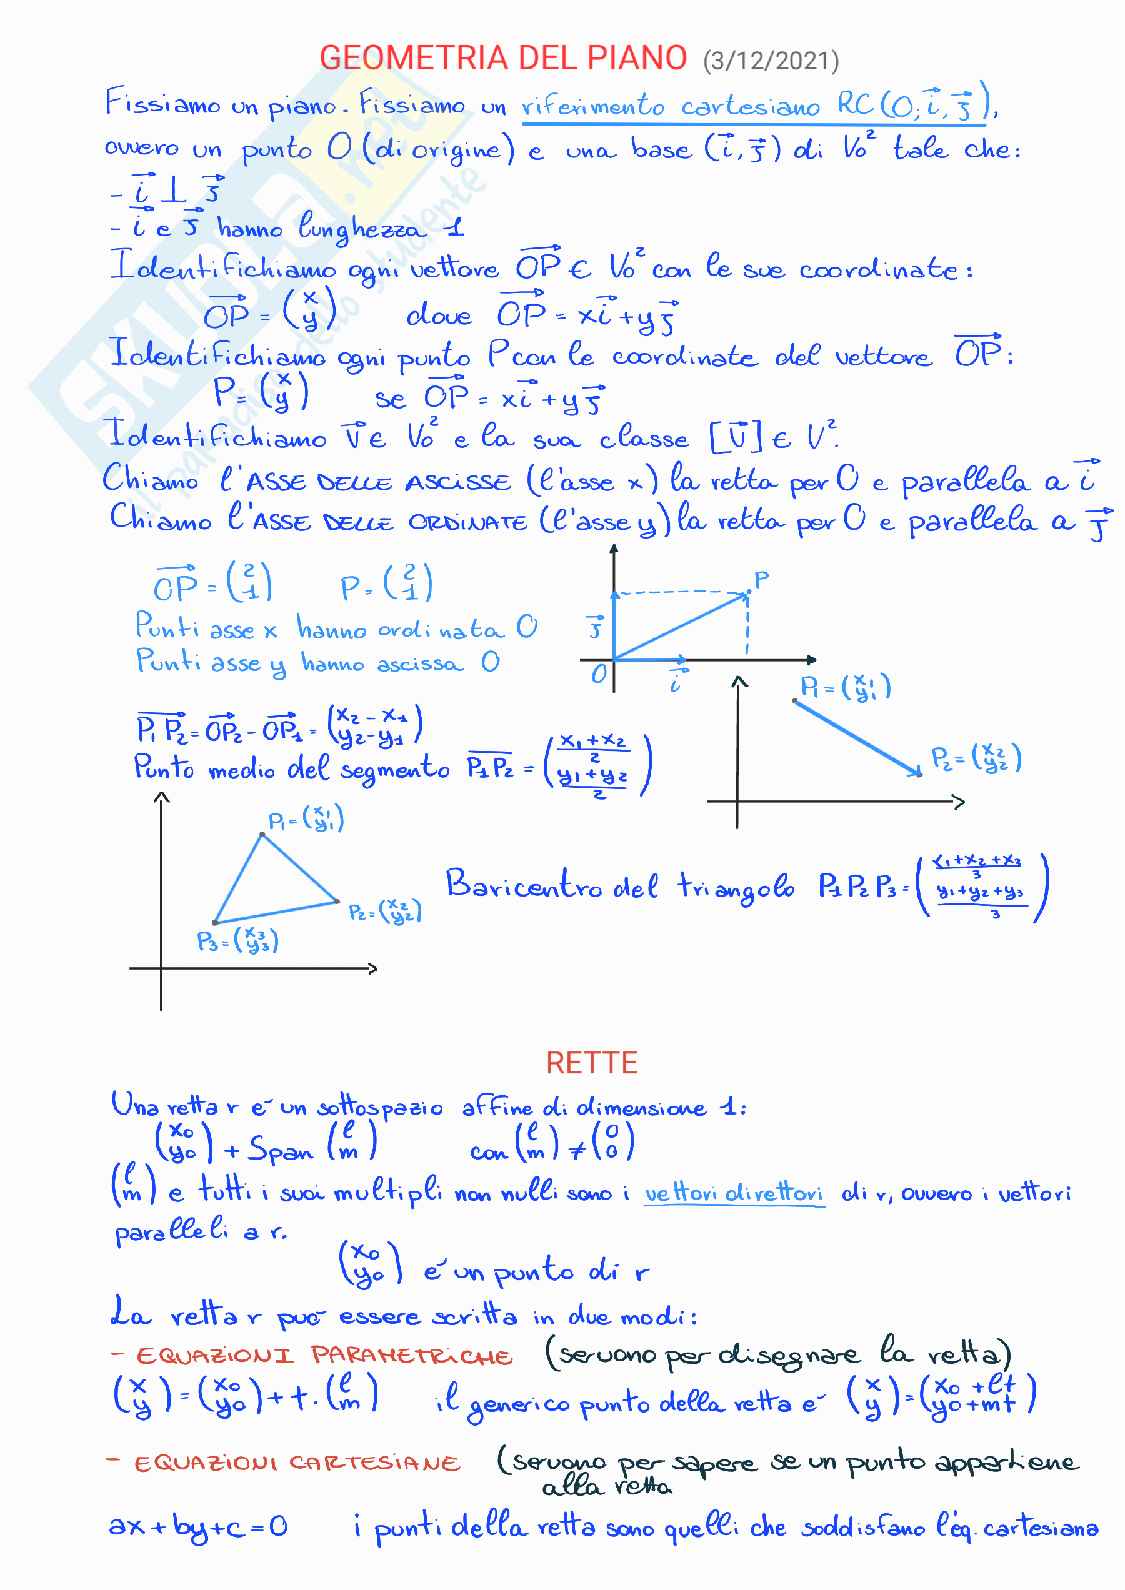 GEOMETRIA DEL PIANO (3/12/2021)
Fissiamo un piano. Fissiamo un riferimento cartesiano RC(O; i⃗, j⃗),
ovvero un punto O (di origine) e una base (i⃗, j⃗) di V₀² tale che:
- i⃗ ⊥ j⃗
- i⃗ e j⃗ hanno lunghezza 1
Identifichiamo ogni vettore OP⃗ ∈ V₀² con le sue coordinate:
OP⃗ = (x y) dove OP⃗ = xi⃗ + yj⃗
Identifichiamo ogni punto P con le coordinate del vettore OP⃗:
P = (x y) se OP⃗ = xi⃗ + yj⃗
Identifichiamo v⃗ ∈ V₀² e la sua classe [v⃗] ∈ V².
Chiamo l'ASSE DELLE ASCISSE (l'asse x) la retta per O e parallela a i⃗
Chiamo l'ASSE DELLE ORDINATE (l'asse y) la retta per O e parallela a j⃗
OP⃗ = (2 1) P = (2 1)
P
Punti asse x hanno ordinata O
j⃗
Punti asse y hanno ascissa O
O
i⃗
P₁ = (x₁ y₁)
P₁P₂ = OP₂ - OP₁ = (x₂ - x₁ y₂ - y₁)
P₂ = (x₂ y₂)
Punto medio del segmento P₁P₂ = ((x₁+x₂)/2 (y₁+y₂)/2)
P₁ = (x₁ y₁)
Baricentro del triangolo P₁P₂P₃ = ((x₁+x₂+x₃)/3 (y₁+y₂+y₃)/3)
P₂ = (x₂ y₂)
P₃ = (x₃ y₃)
RETTE
Una retta r è un sottospazio affine di dimensione 1:
(x₀ y₀) + Span (l m) con (l m) ≠ (0 0)
(l m) e tutti i suoi multipli non nulli sono i vettori direttori di r, ovvero i vettori
paralleli a r.
(x₀ y₀) è un punto di r
La retta r può essere scritta in due modi:
- EQUAZIONI PARAMETRICHE (servono per disegnare la retta)
(x y) = (x₀ y₀) + t · (l m) il generico punto della retta è (x y) = (x₀ + lt y₀ + mt)
- EQUAZIONI CARTESIANE (servono per sapere se un punto appartiene
alla retta
ax + by + c = 0 i punti della retta sono quelli che soddisfano l'eq. cartesiana
SKUOLA.net
il paradiso dello studente